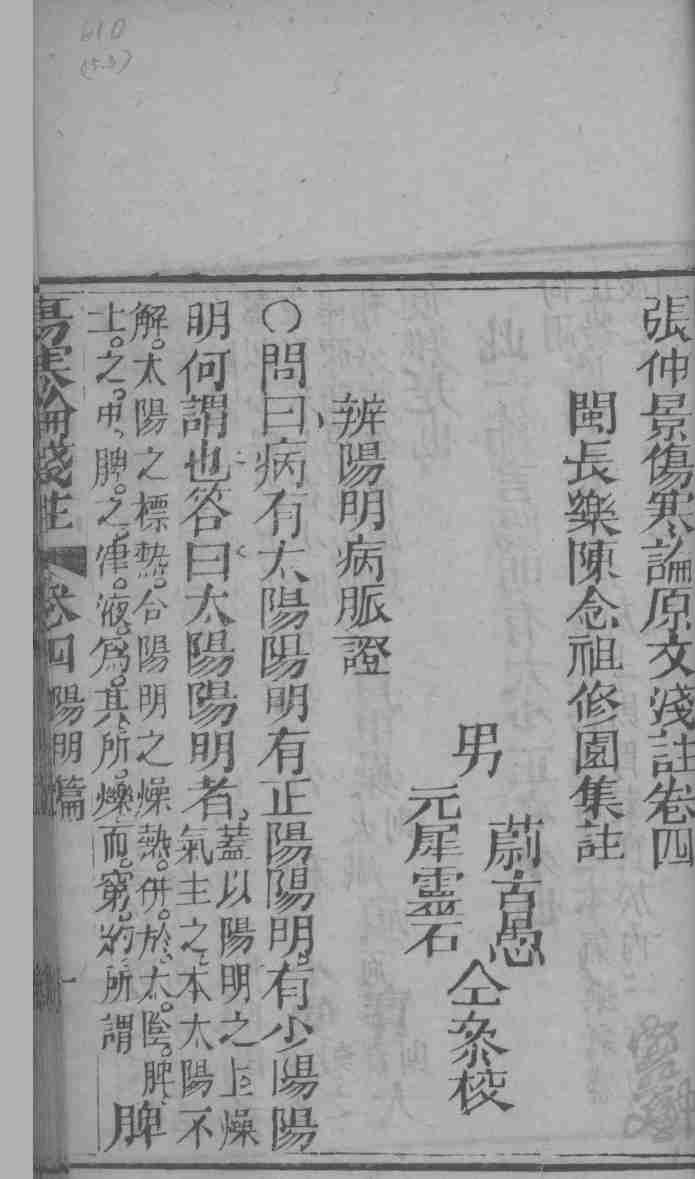 張仲景傷寒論原文淺註卷四
閩長樂陳念祖修園集註
男
蔚古愚
元犀靈石
仝叅校
辨陽明病脈證
〇問曰病有太陽陽明有正陽陽明有少陽陽
明何謂也答曰太陽陽明者
蓋以陽明之上燥
氣主之本太陽不
解。太陽之標熱。合陽明之燥熱。併於太陰。脾
土。之。中、脾。之。津。液。爲。其。所。爍而。窮。約所謂
脾
傷寒論淺註
卷四
陽明篇
一
610
(5.3)